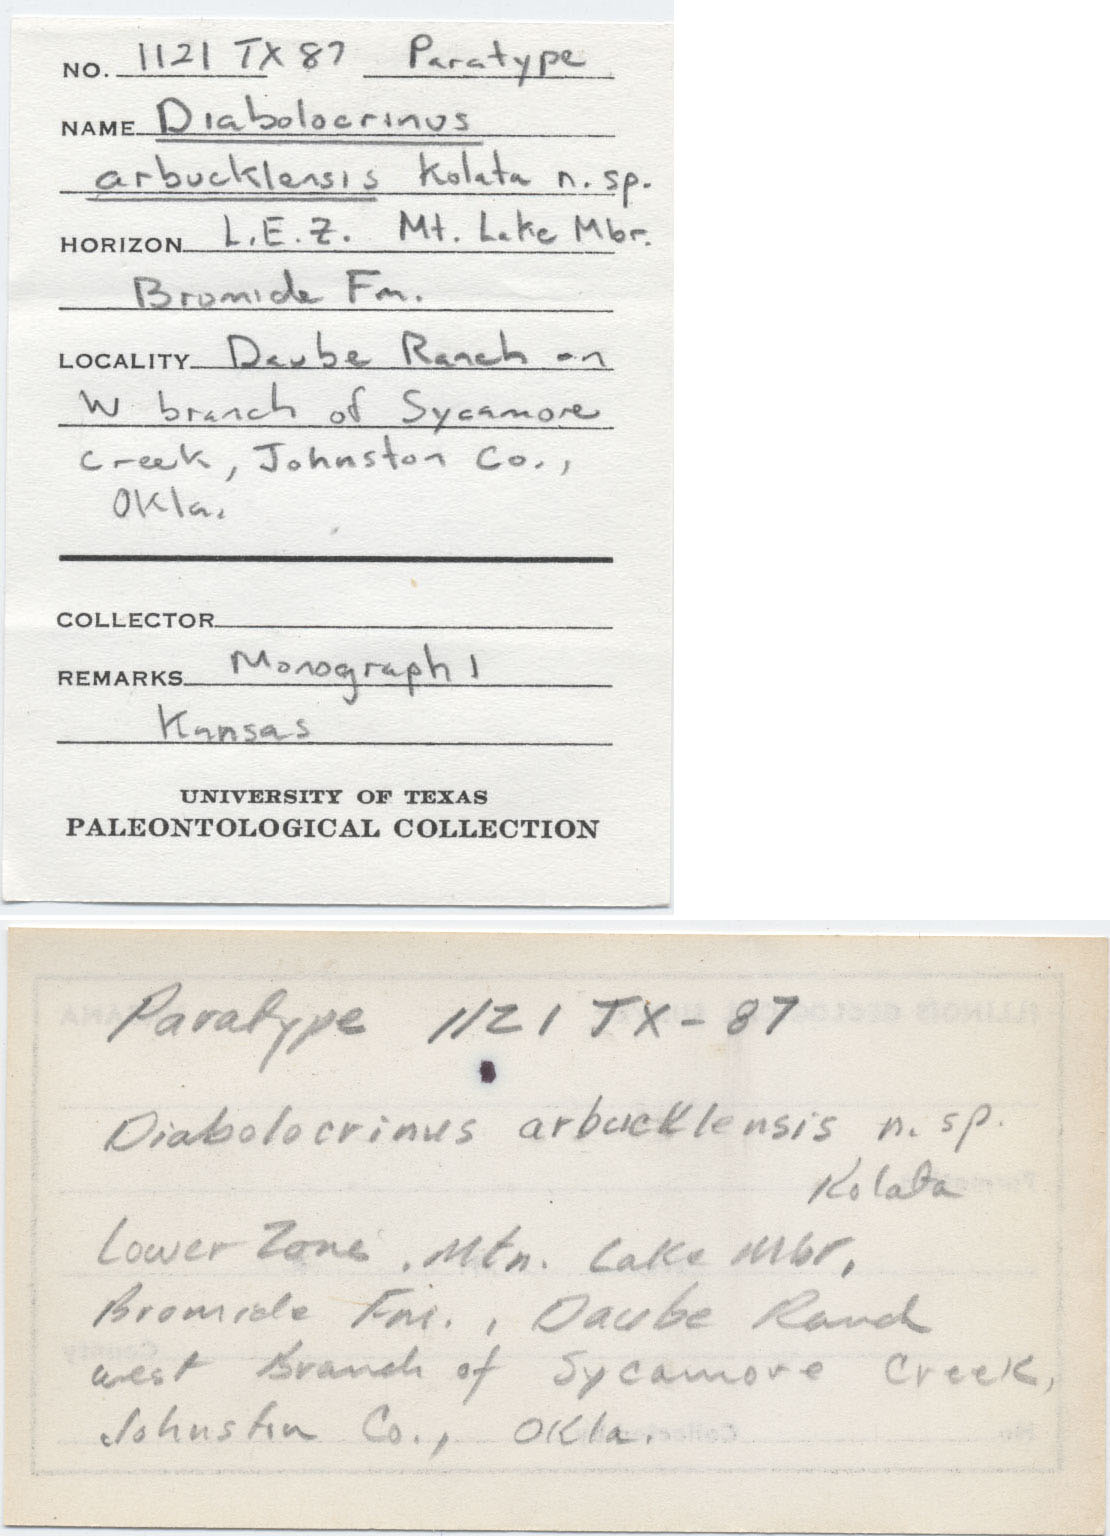 NO. 1121 TX 87 Paratype
NAME Diabolocrinus
arbucklensis Kolata n. sp.
HORIZON L.E.Z. Mt. Lake Mbr.
Bromide Fm.
LOCALITY Daube Ranch on
W branch of Sycamore
Creek, Johnston Co.,
Okla.
COLLECTOR
REMARKS Monograph 1
Kansas
UNIVERSITY OF TEXAS
PALEONTOLOGICAL COLLECTION
Paratype 1121 TX-87
Diabolocrinus arbucklensis n. sp.
Kolata
Lower Zone, Mtn. Lake Mbr,
Bromide Fm., Daube Ranch
west Branch of Sycamore Creek,
Johnston Co., Okla.